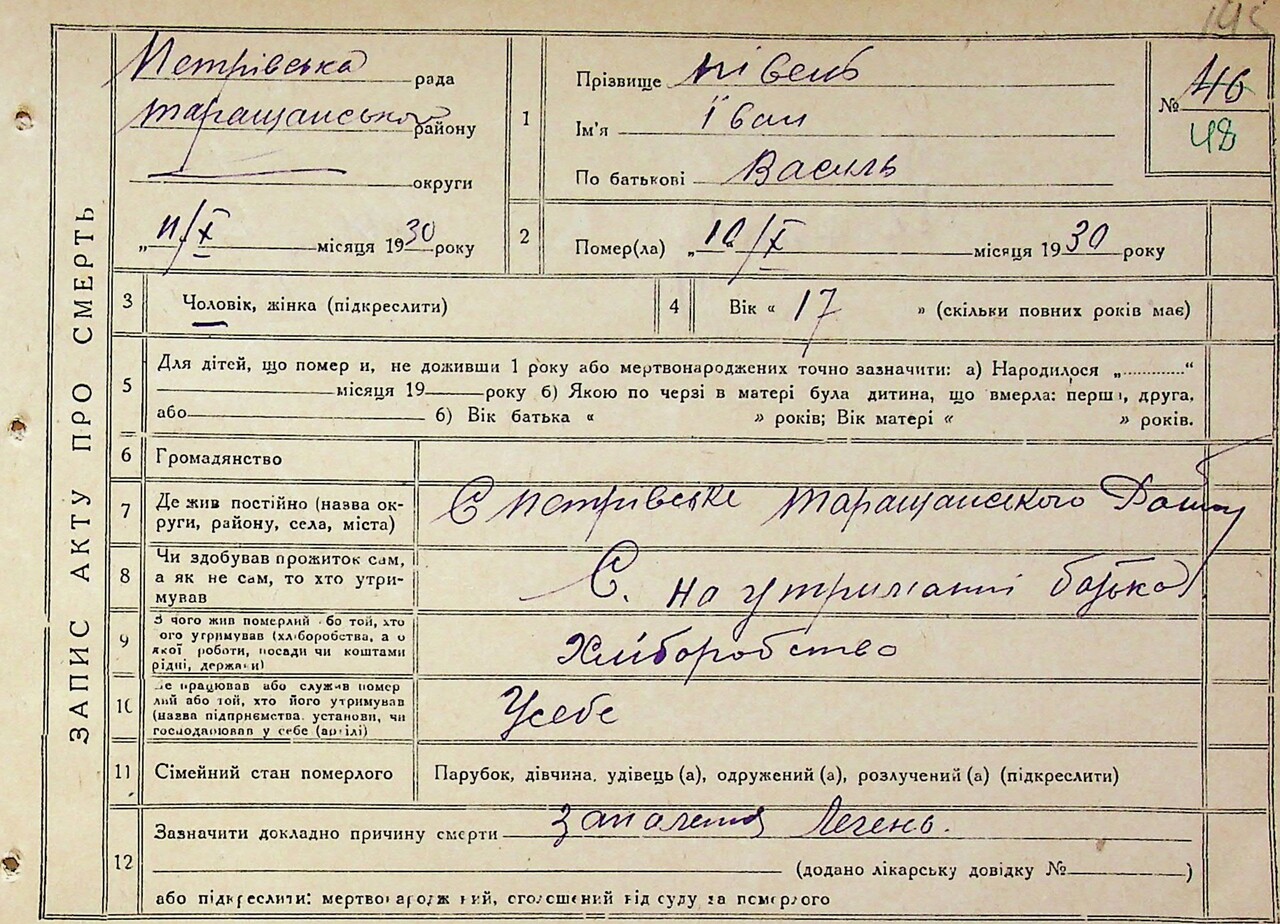 ЗАПИС АКТУ ПРО СМЕРТЬ
Петрівська рада
Таращанського району
округи
„11/X місяця 1930 року
1
Прізвище Півень
Ім'я Іван
По батькові Василь
№ 46
48
2
Помер(ла) „10“/X місяця 1930 року
3
Чоловік, жінка (підкреслити)
4
Вік « 17 » (скільки повних років має)
5
Для дітей, що помер и, не доживши 1 року або мертвонароджених точно зазначити: а) Народилося „............“
місяця 19 року б) Якою по черзі в матері була дитина, що вмерла: перш , друга,
або б) Вік батька « » років; Вік матері « » років.
6
Громадянство
7
Де жив постійно (назва ок-
руги, району, села, міста)
С Петрівське Таращанского Району
8
Чи здобував прожиток сам,
а як не сам, то хто утри-
мував
С. на утриманні батька
9
З чого жив померлий бо той, хто
ого утримував (хліборобства, а о
якої роботи, посади чи коштами
рідні, держави)
Хліборобство
10
е працював або служив помер
лий або той, хто його утримував
(назва підприємства. установи, чи
господарював у себе (артілі)
Усебе
11
Сімейний стан померлого
Парубок, дівчина. удівець (а), одружений (а), розлучений (а) (підкреслити)
12
Зазначити докладно причину смерти Запалення Легень.
(додано лікарську довідку № )
або підкреслити: мертвонароджений, оголошений від суду за померлого